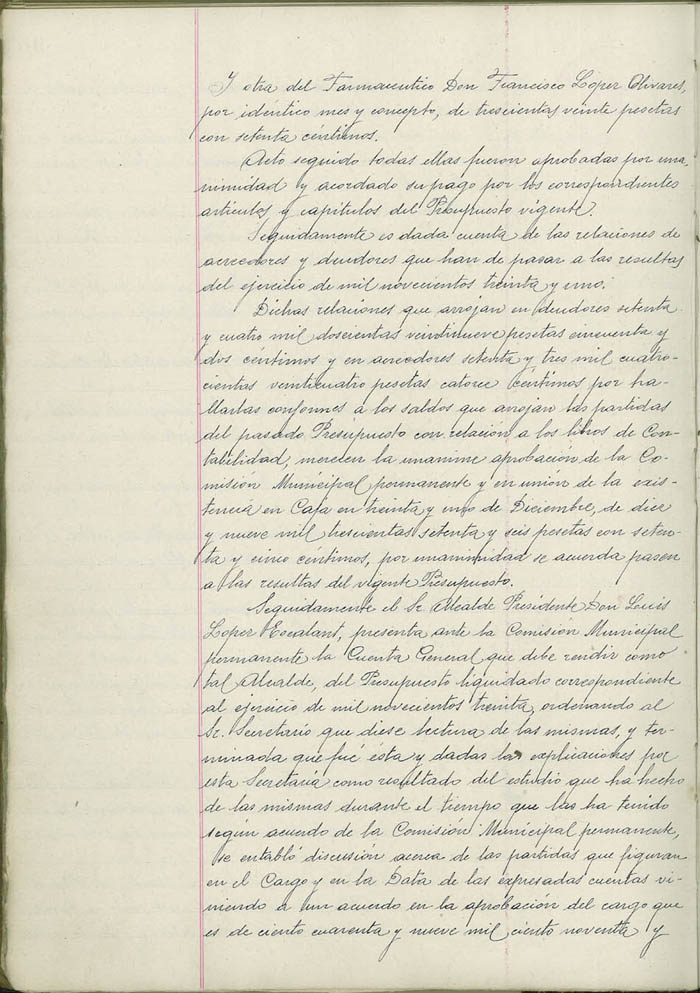 Y otra del Farmaceutico Don Francisco Lopez Olivares,
por identico mes y concepto, de trescientas veinte pesetas
con setenta céntimos.
Acto seguido todas ellas fueron aprobadas por una-
nimidad y acordado su pago por los correspondientes
articulos y capitulos del Presupuesto vigente.
Seguidamente es dada cuenta de las relaciones de
acreedores y deudores que han de pasar a las resultas
del ejercicio de mil novecientos treinta y uno.
Dichas relaciones que arrojan en deudores setenta
y cuatro mil doscientas veintinueve pesetas cincuenta y
dos céntimos y en acreedores setenta y tres mil cuatro-
cientas veinticuatro pesetas catorce céntimos por ha-
llarlas conformes a los saldos que arrojan las partidas
del pasado Presupuesto con relación a los libros de Con-
tabilidad, merecen la unanime aprobación de la Co-
misión Municipal permanente y en unión de la exis-
tencia en Caja en treinta y uno de Diciembre, de diez
y nueve mil trescientas setenta y seis pesetas con seten-
ta y cinco céntimos, por unanimidad se acuerda pasen
a las resultas del vigente Presupuesto.
Seguidamente el Sr. Alcalde Presidente Don Luis
Lopez Escalant, presenta ante la Comisión Municipal
permanente la Cuenta General que debe rendir como
tal Alcalde, del Presupuesto liquidado correspondiente
al ejercicio de mil novecientos treinta, ordenando al
Sr. Secretario que diese lectura de las mismas, y ter-
minada que fué ésta y dadas las explicaciones por
esta Secretaría como resultado del estudio que ha hecho
de las mismas durante el tiempo que las ha tenido
según acuerdo de la Comisión Municipal permanente,
se entabló discusión acerca de las partidas que figuran
en el Cargo y en la Data de las expresadas cuentas vi-
niendo a un acuerdo en la aprobación del cargo que
es de ciento cuarenta y nueve mil ciento noventa y